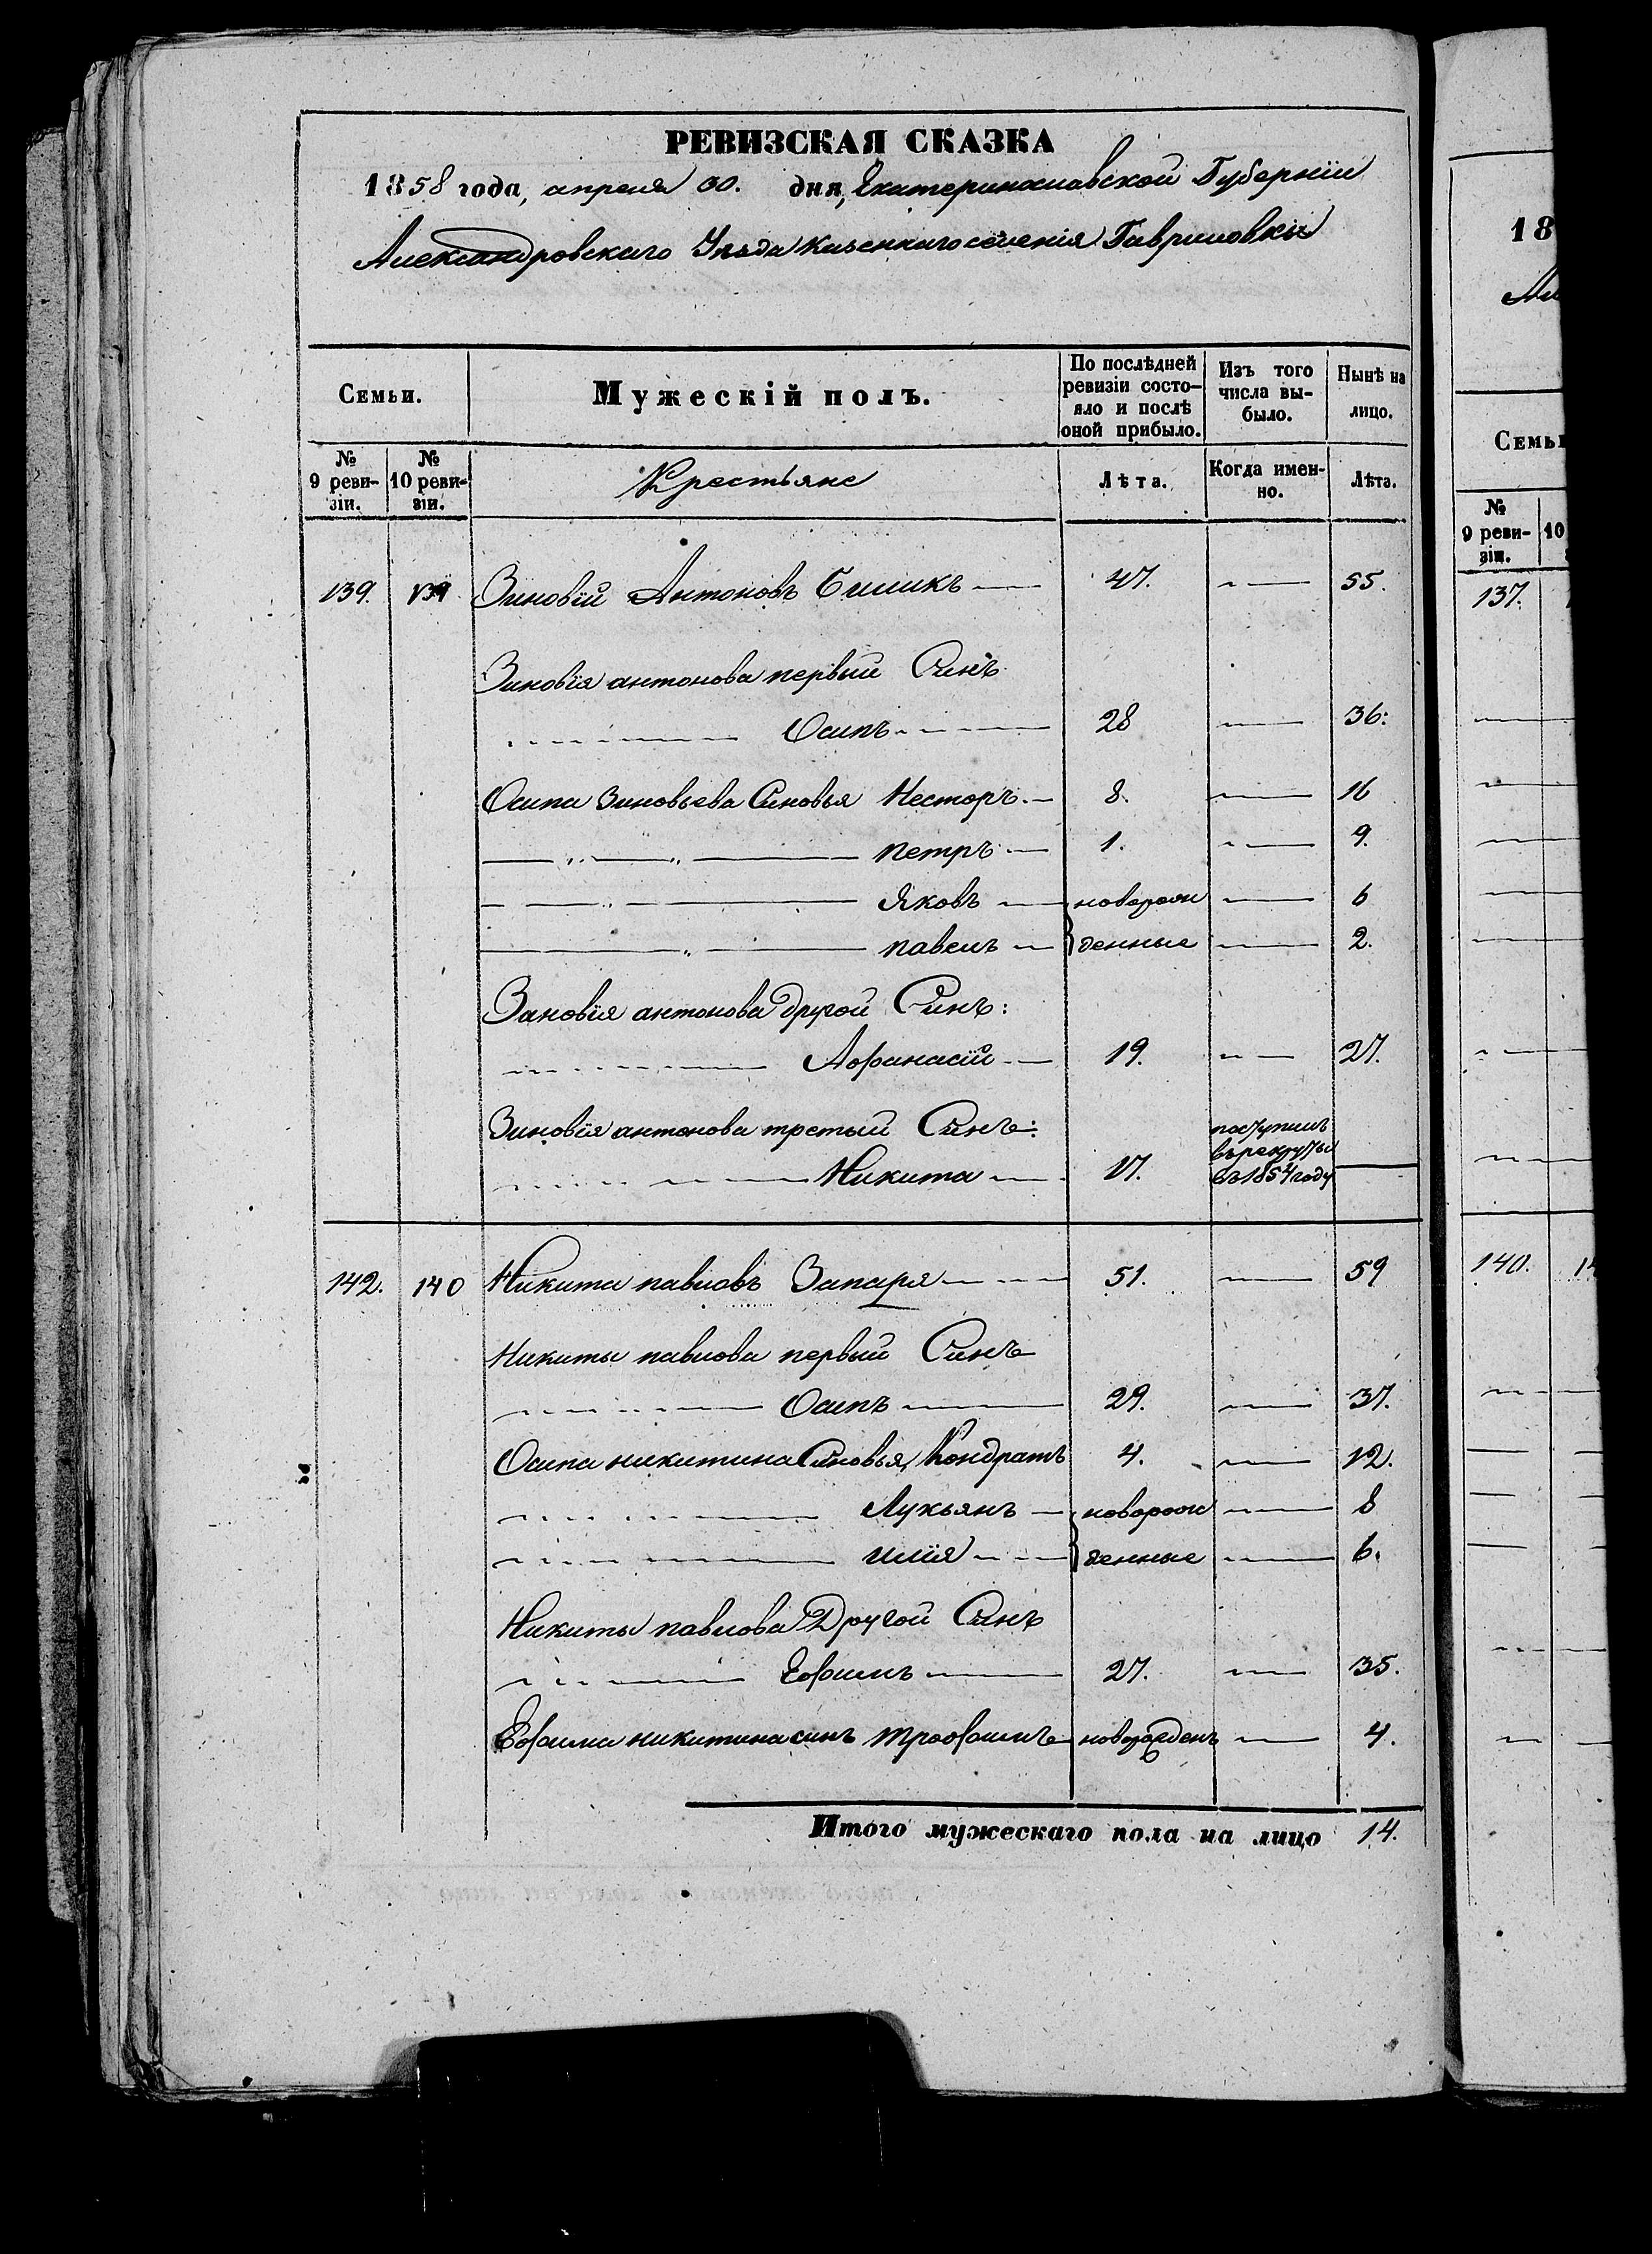 РЕВИЗСКАЯ СКАЗКА
1858 года, апреля 30. дня, Екатеринославской Губерніи
Александровскаго Уѣзда Казеннаго селенія Гавриловки
Семьи.
Мужескій полъ.
По послѣдней ревизіи состо-
яло и послѣ
оной прибыло.
Изъ того
числа вы-
было.
Нынѣ на
лицо.
№
9 реви-
зіи.
№
10 реви-
зіи.
Крестьяне
Лѣта.
Когда имен-
но.
Лѣта.
139. 139 Зиновій Антоновъ 47. 55.
Зиновія антонова первый Сынъ
Осипъ 28 36:
Осипа Зиновьева Сыновья Несторъ 8. 16
петръ 1. 9.
Яковъ новорож 6
павелъ денные 2.
Зановія антонова другой Сынъ:
Афанасій 19. 27.
Зиновія антонова третый Сынъ:
Никита 17. поступилъ
въ рекруты
въ 1854 году
142. 140 Никита павловъ Запаря 51. 59
Никиты павлова первый Сынъ
Осипъ 29. 37.
Осипа никитина Сыновья, Кондратъ 4. 12.
Лукьянъ новорож 8
илія денные 6.
Никиты павлова Другой Сынъ
Ефимъ 27. 35.
Ефима никитина сынъ трофимъ новорожденъ 4.
Итого мужескаго пола на лицо 14.
18
Семьи
№
9 реви-
зіи.
10
137.
140. 14